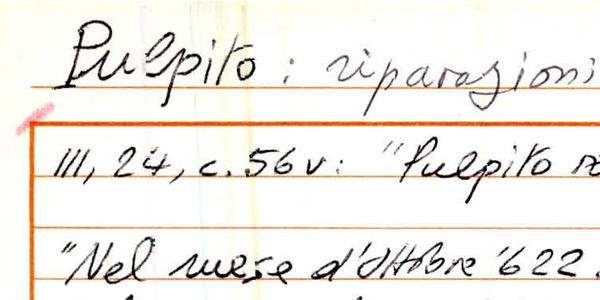 Pulpito: riparazioni
III, 24, c. 56 v: "Pulpito
"Nel mese d'ottobre '622.